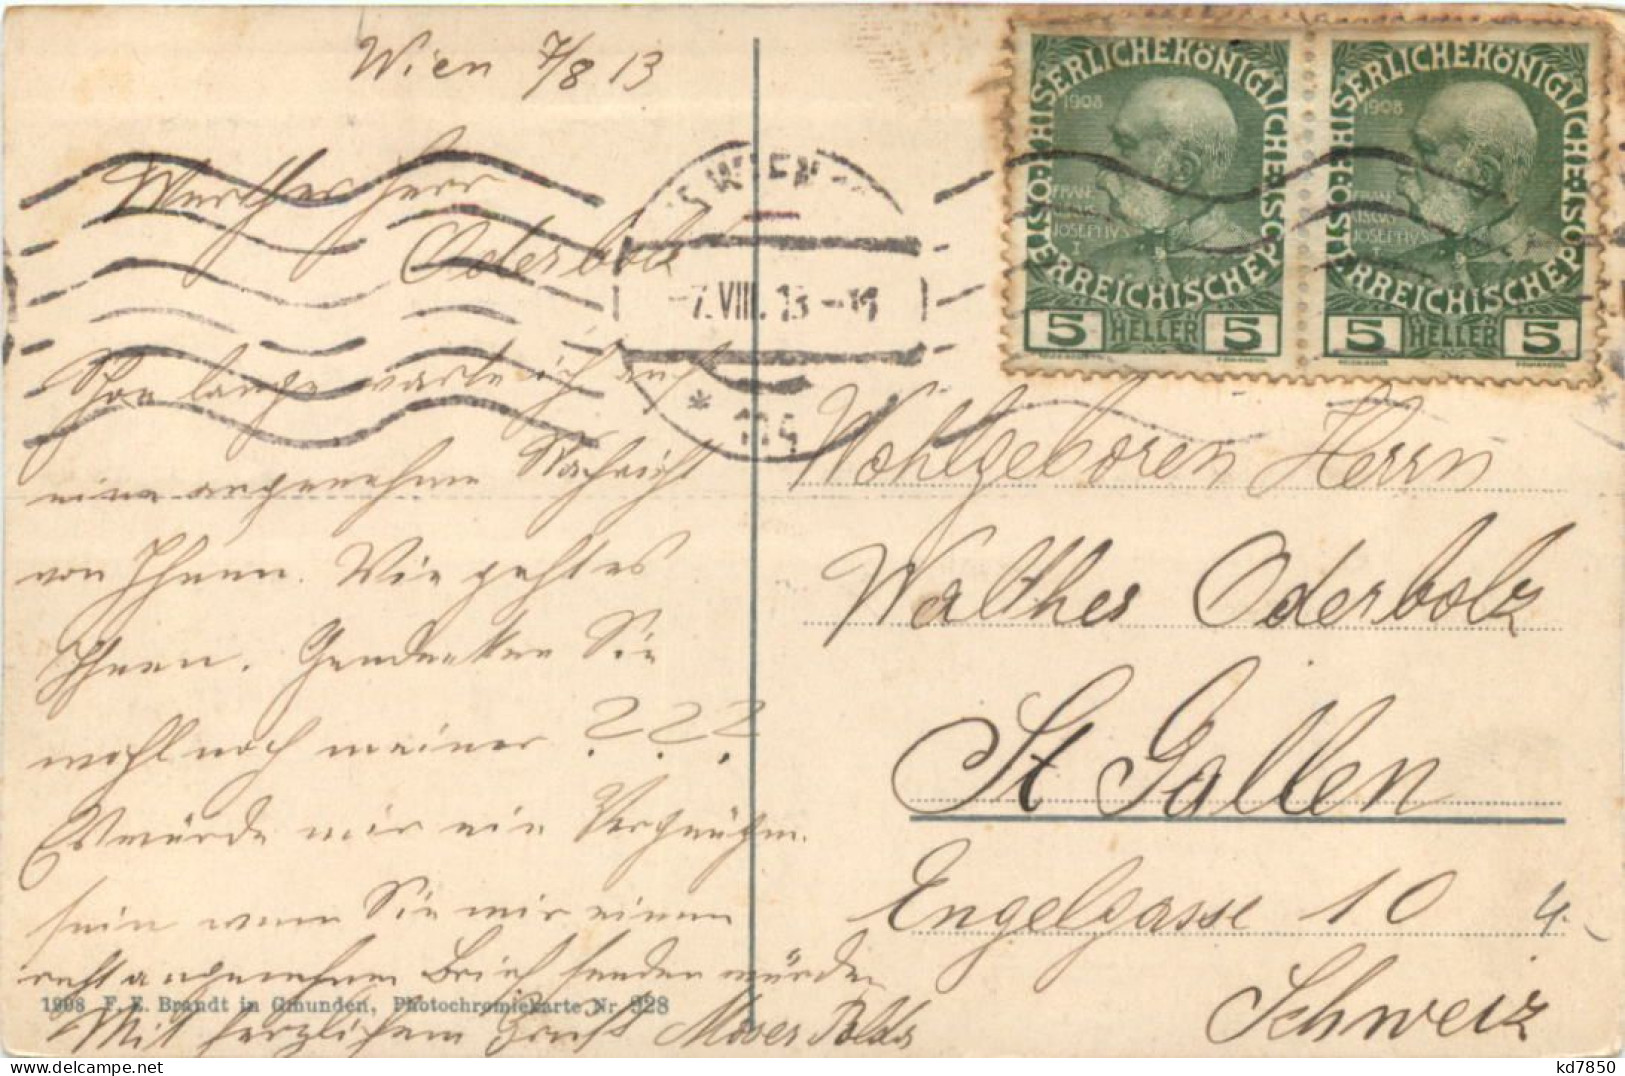 Wien 7/8 13
Werther Herr
Oderbolz
Schon lange warte ich auf
eine angenehme Nachricht
von Ihnen. Wie geht es
Ihnen. Gendenken Sie
wohl noch meiner ???
Es würde mir ein Vergnügen
sein wenn Sie mir einen
recht angenehmen Brief senden würden
Mit herzlichem Gruß Moser Poldi
1908 F. E. Brandt in Gmunden, Photochromiekarte Nr. 928
WIEN
-7.VIII.13-
* 
KAISERLICHEKÖNIGLICHE ÖSTERREICHISCHE POST
1908
FRANCISCUS
JOSEPHVS
I
5 HELLER 5
KAISERLICHEKÖNIGLICHE ÖSTERREICHISCHE POST
1908
FRANCISCUS
JOSEPHVS
I
5 HELLER 5
Wohlgeboren Herrn
Walther Oderbolz
St Gallen
Engelgasse 10
4.
Schweiz
www.delcampe.net
kd7850